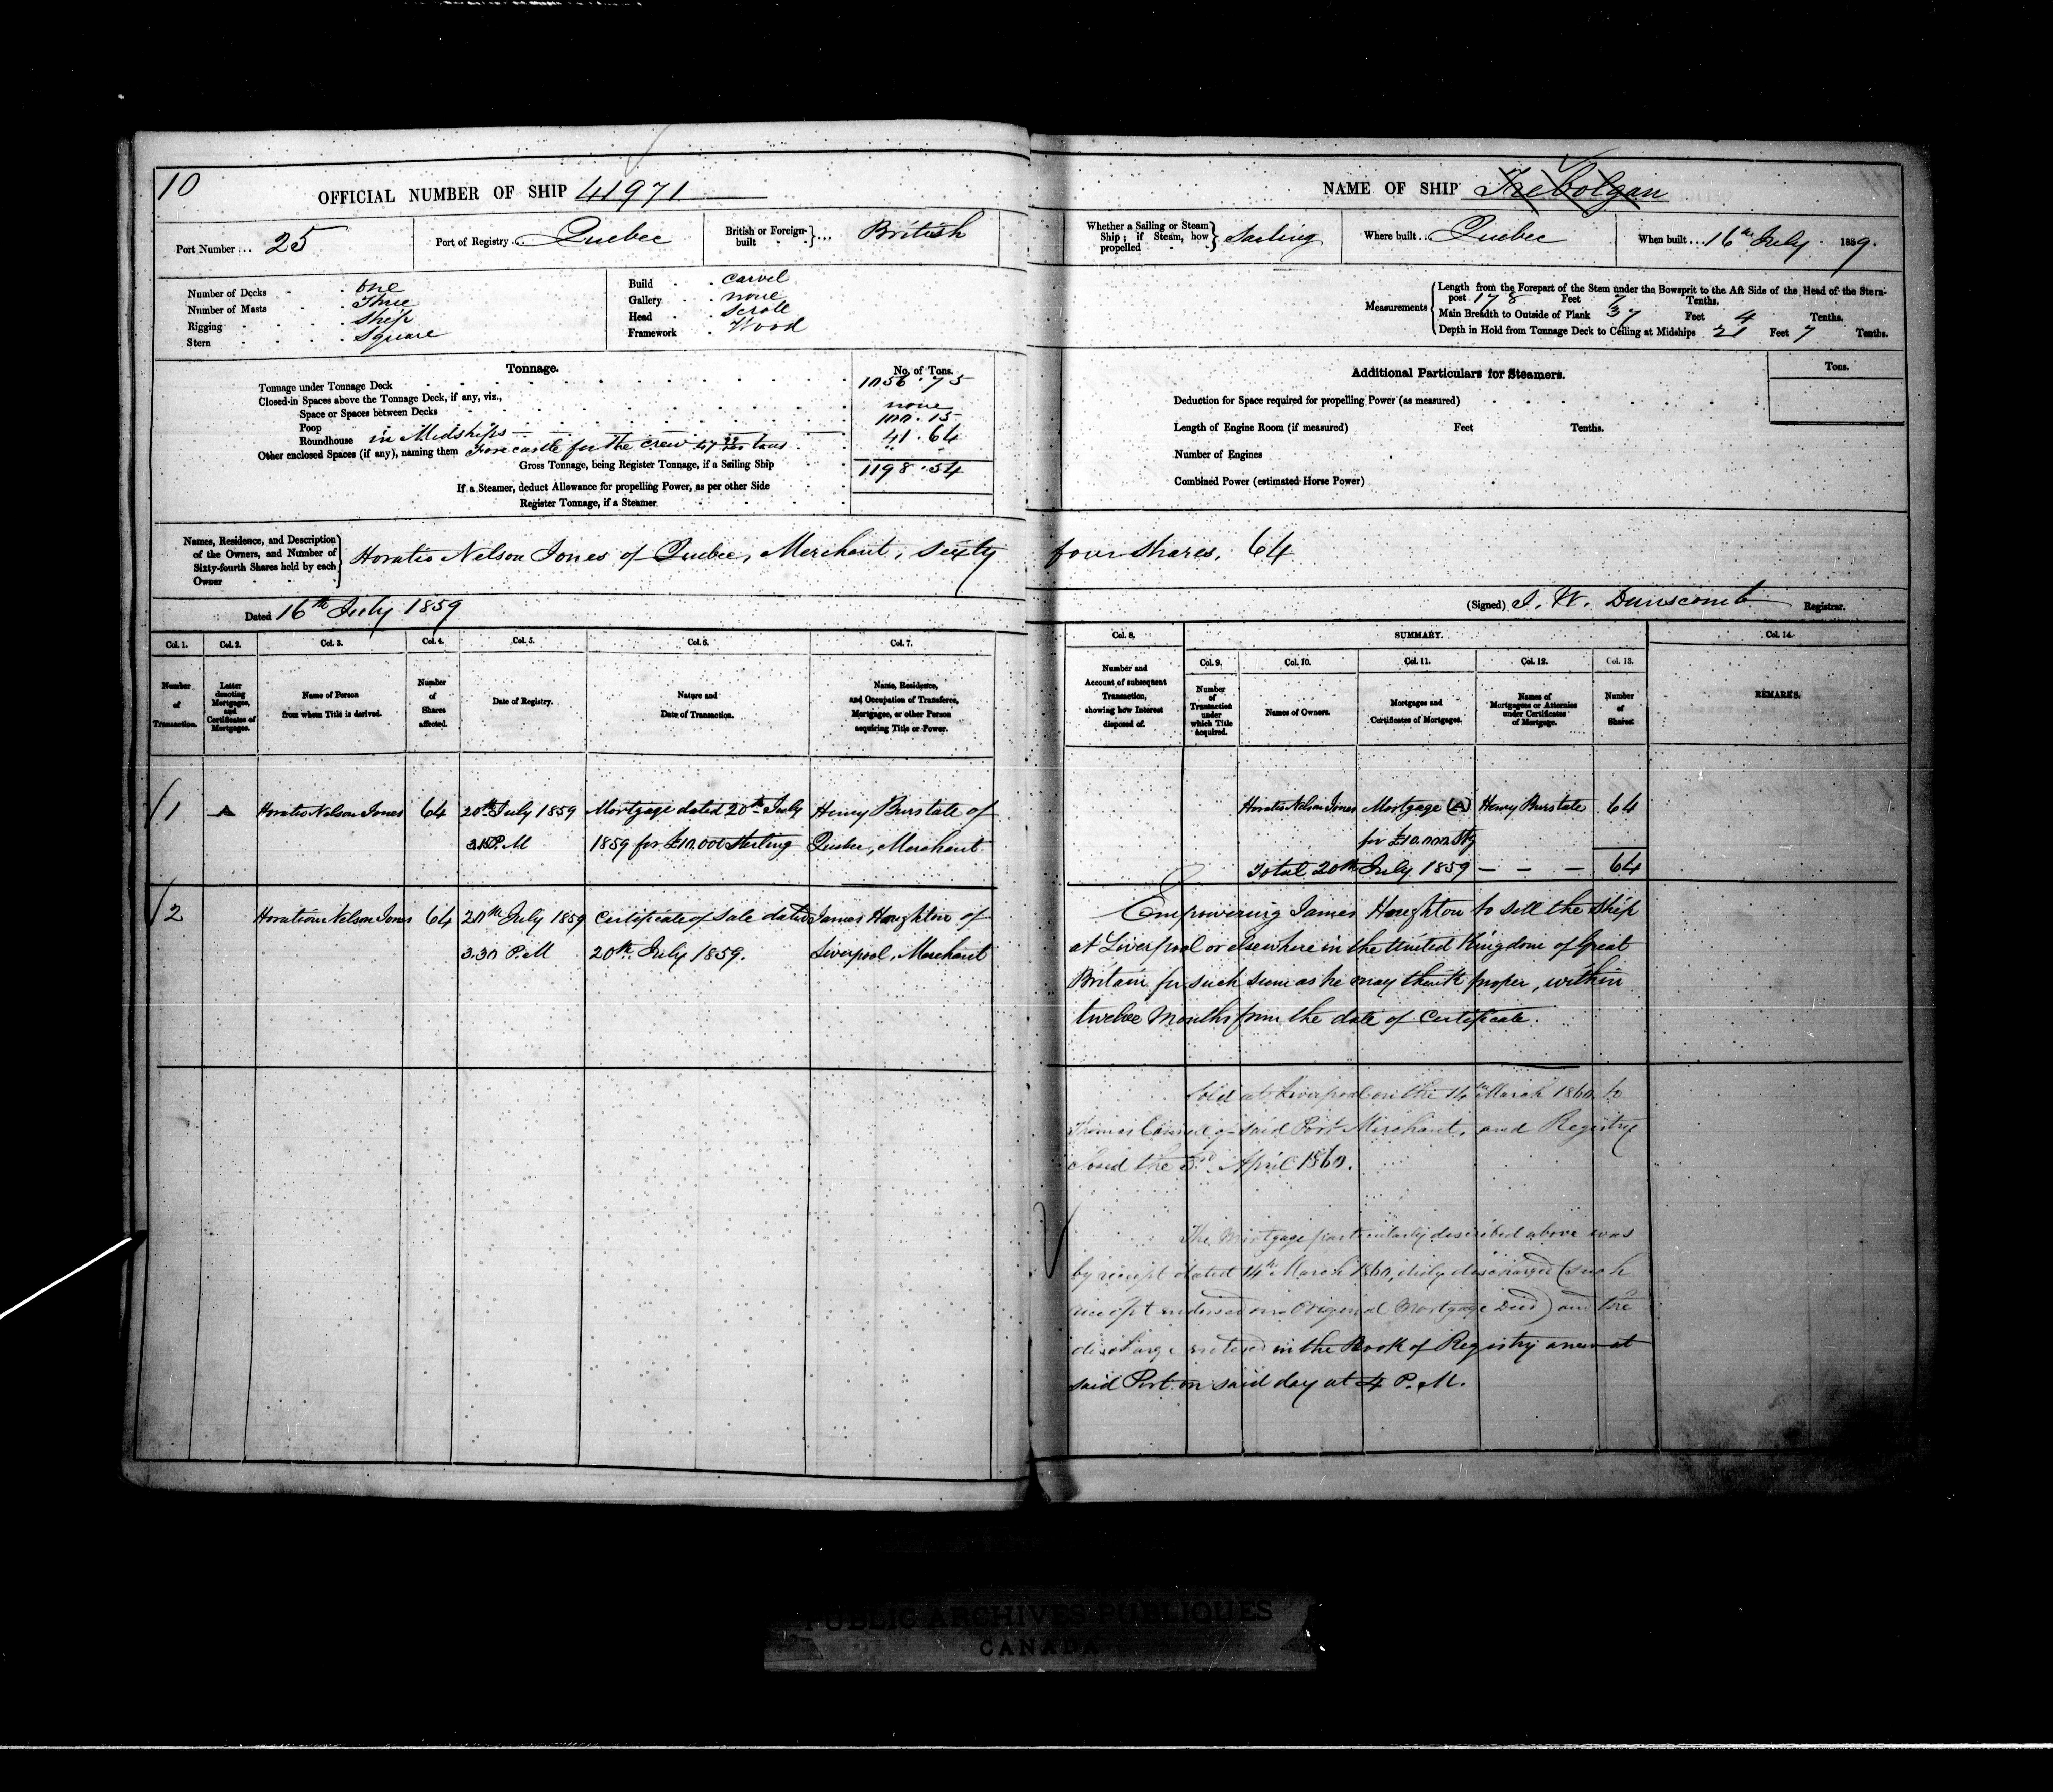 10
OFFICIAL NUMBER OF SHIP 41971
Port Number ... 25
Port of Registry ... Quebec
British or Foreign-built }... British
Number of Decks . One
Number of Masts . Three
Rigging . Ship
Stern . Square
Build . Carvel
Gallery . none
Head . Scroll
Framework . Wood
Tonnage.
No. of Tons.
Tonnage under Tonnage Deck 1056.75
Closed-in Spaces above the Tonnage Deck, if any, viz.,
Space or Spaces between Decks none
Poop 100.15
Roundhouse in Midships 41.64
Other enclosed Spaces (if any), naming them Forecastle for the crew 47 tons
Gross Tonnage, being Register Tonnage, if a Sailing Ship 1198.54
If a Steamer, deduct Allowance for propelling Power, as per other Side
Register Tonnage, if a Steamer
Names, Residence, and Description of the Owners, and Number of Sixty-fourth Shares held by each Owner } Horatio Nelson Jones of Quebec, Merchant, sixty
Dated 16th July 1859
Col. 1. Col. 2. Col. 3. Col. 4. Col. 5. Col. 6. Col. 7.
Number of Transaction.
Letter denoting Mortgages, and Certificates of Mortgages.
Name of Person from whom Title is derived.
Number of Shares affected.
Date of Registry.
Nature and Date of Transaction.
Name, Residence, and Occupation of Transferee, Mortgagee, or other Person acquiring Title or Power.
1 A Horatio Nelson Jones 64 20th July 1859 Mortgage dated 20th July Henry Burstall of
P.M 1859 for £10,000 Sterling Quebec, Merchant
2 Horatio Nelson Jones 64 20th July 1859 Certificate of Sale dated James Houghton of
3.30 P.M 20th July 1859. Liverpool, Merchant
NAME OF SHIP Trebolgan
Whether a Sailing or Steam Ship; if Steam, how propelled } Sailing
Where built ... Quebec
When built ... 16th July 1859.
Measurements
Length from the Forepart of the Stem under the Bowsprit to the Aft Side of the Head of the Stern-
post 178 Feet 7 Tenths.
Main Breadth to Outside of Plank 37 Feet 4 Tenths.
Depth in Hold from Tonnage Deck to Ceiling at Midships 21 Feet 7 Tenths.
Additional Particulars for Steamers.
Tons.
Deduction for Space required for propelling Power (as measured)
Length of Engine Room (if measured) Feet Tenths.
Number of Engines
Combined Power (estimated Horse Power)
four shares. 64
(Signed) J. W. Dunscomb Registrar.
Col. 8. SUMMARY. Col. 14.
Col. 9. Col. 10. Col. 11. Col. 12. Col. 13.
Number and Account of subsequent Transaction, showing how Interest disposed of.
Number of Transaction under which Title acquired.
Names of Owners.
Mortgages and Certificates of Mortgages.
Names of Mortgagees or Attornies under Certificates of Mortgage.
Number of Shares.
REMARKS.
Horatio Nelson Jones Mortgage (A) Henry Burstall 64
for £10.000 Stg
Total 20th July 1859 — — — 64
Empowering James Houghton to sell the Ship
at Liverpool or elsewhere in the United Kingdom of Great
Britain for such sum as he may think proper, within
twelve Months from the date of Certificate.
Sold at Liverpool on the 14th March 1860 to
Thomas of said Port Merchant, and Registry
closed the 3rd April 1860.
The Mortgage particularly described above was
by receipt dated 14th March 1860, duly discharged (such
receipt endorsed on Original Mortgage Deed) and the
discharge entered in the Book of Registry anew at
said Port on said day at 4 P.M.
PUBLIC ARCHIVES PUBLIQUES
CANADA